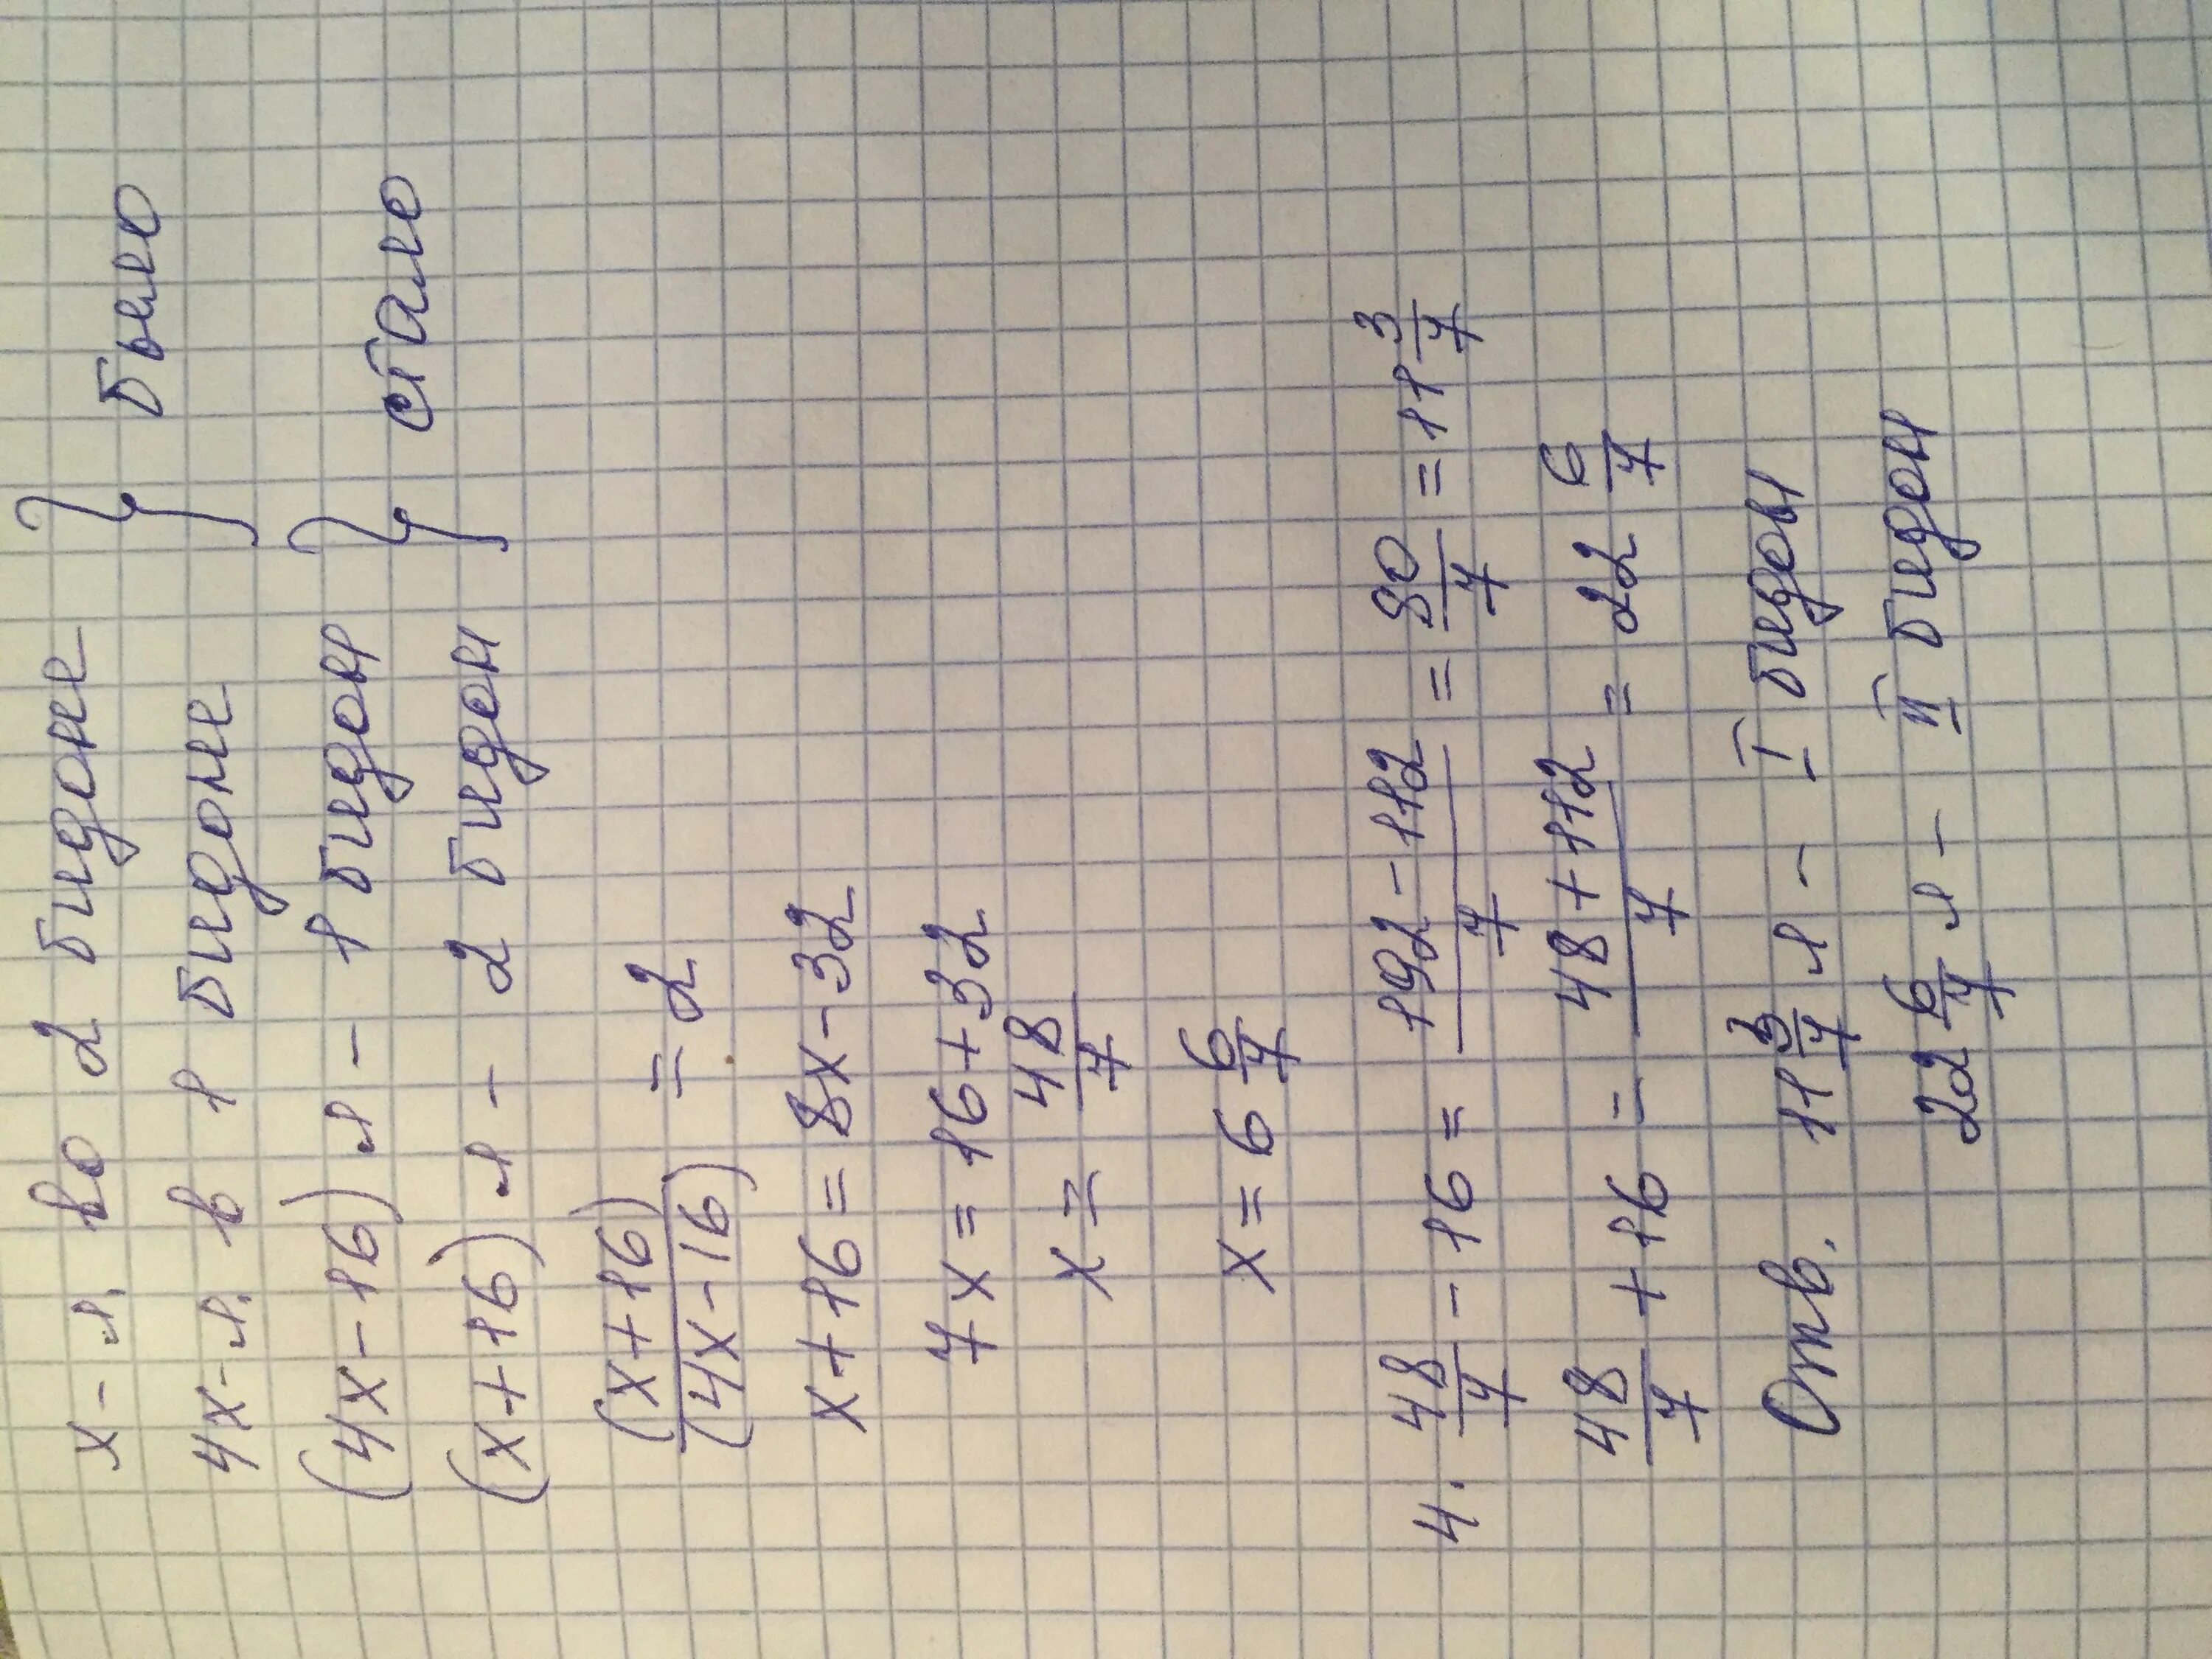 x - л. во 2 бидоне } было
4x - л. в 1 бидоне
(4x-16) л - 1 бидон } стало
(x+16) л - 2 бидон
(x+16)/(4x-16) = 2
x+16 = 8x-32
7x = 16+32
x = 48/7
x = 6 6/7
4 · 48/7 - 16 = (192-112)/7 = 80/7 = 11 3/7
48/7 + 16 = (48+112)/7 = 22 6/7
Отв. 11 3/7 л - I бидон
22 6/7 л - II бидон